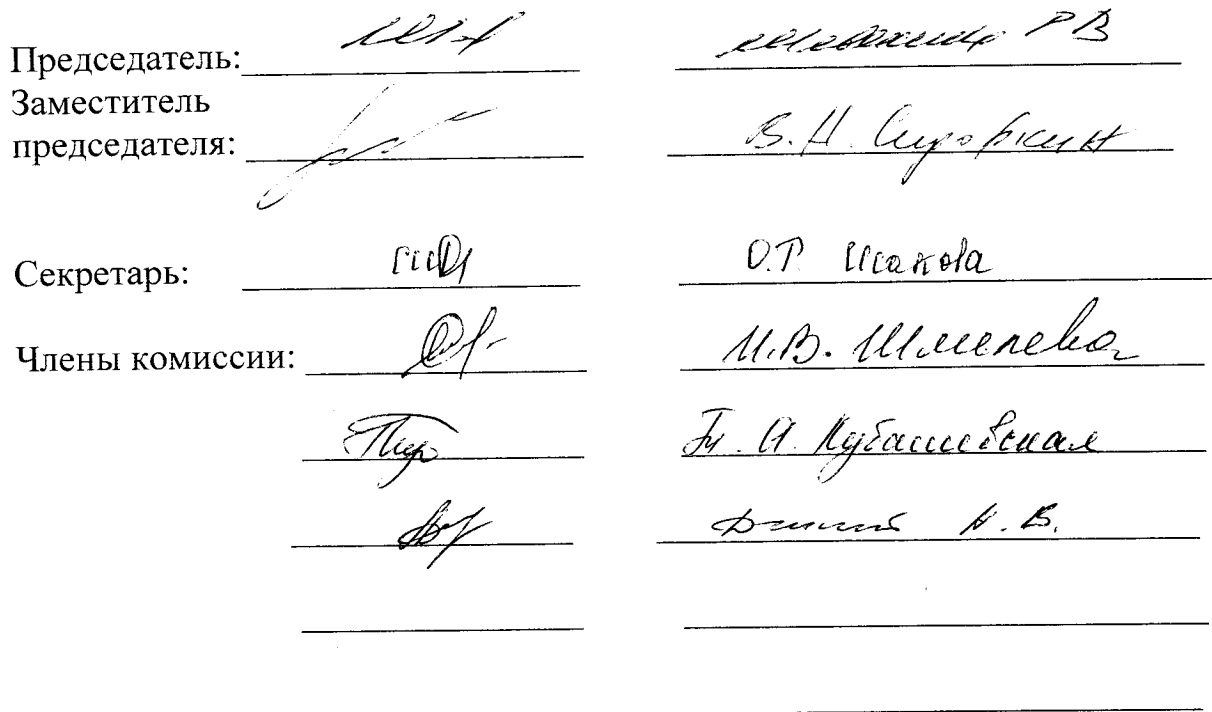 Председатель: Р В
Заместитель
председателя: В.Н. Сироткин
Секретарь: О.Р. Исакова
Члены комиссии: И.В. Шмелева
А. Кубашевская
Н. В.